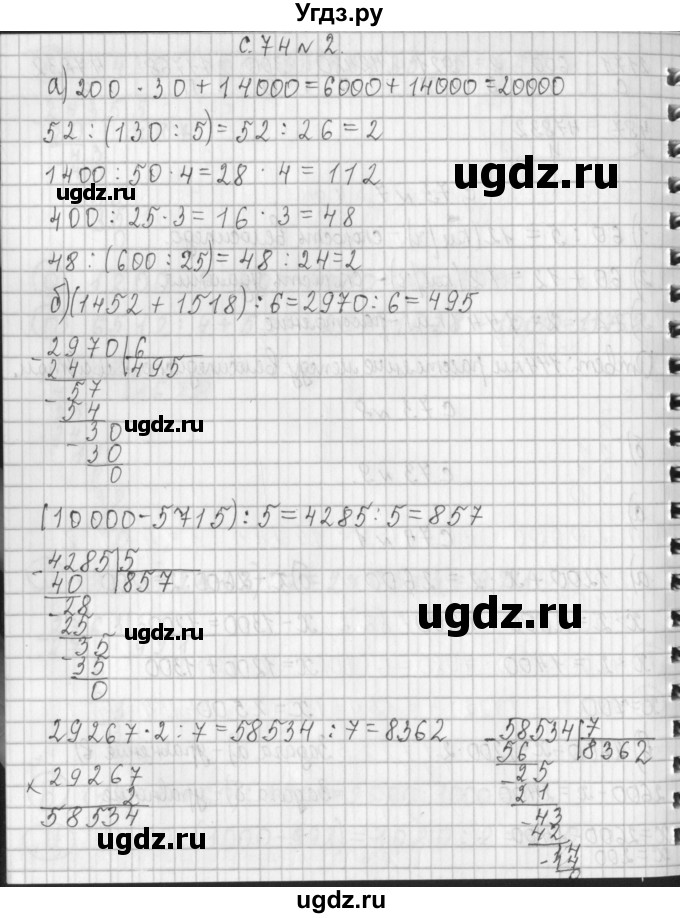 Угдз.ру
с. 74 № 2.
а) 200 · 30 + 14000 = 6000 + 14000 = 20000
52 : (130 : 5) = 52 : 26 = 2
1400 : 50 · 4 = 28 · 4 = 112
400 : 25 · 3 = 16 · 3 = 48
48 : (600 : 25) = 48 : 24 = 2
б) (1452 + 1518) : 6 = 2970 : 6 = 495
- 2970 | 6
24 | 495
- 57
54
- 30
30
0
(10 000 - 5715) : 5 = 4285 : 5 = 857
- 4285 | 5
40 | 857
- 28
25
- 35
35
0
29267 · 2 : 7 = 58534 : 7 = 8362
× 29267
2
58534
- 58534 | 7
56 | 8362
- 25
21
- 43
42
- 14
14
0
ugdz.ru
ugdz.ru
ugdz.ru
ugdz.ru
ugdz.ru
ugdz.ru
ugdz.ru
ugdz.ru